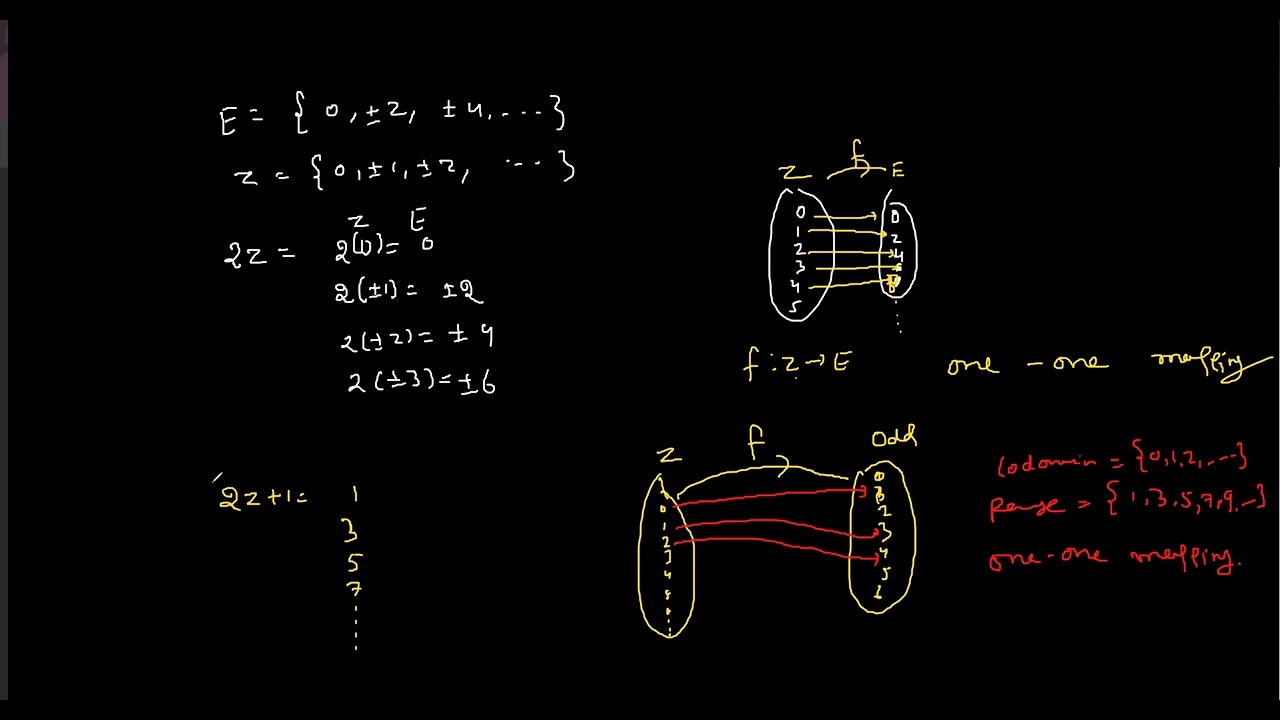 E = { 0, ±2, ±4, .... }
z = { 0, ±1, ±2, .... }
z E
2z = 2(0) = 0
2(±1) = ±2
2(±2) = ±4
2(±3) = ±6
2z+1 = 1
3
5
7
z f E
0 0
1 2
2 4
3
4
5
f : z → E one - one mapping
z f Odd
0
0
1 2
2 3
3 4
4 5
5 6
Codomin = {0,1,2, ....}
Range = { 1,3,5,7,9..}
one-one mapping.